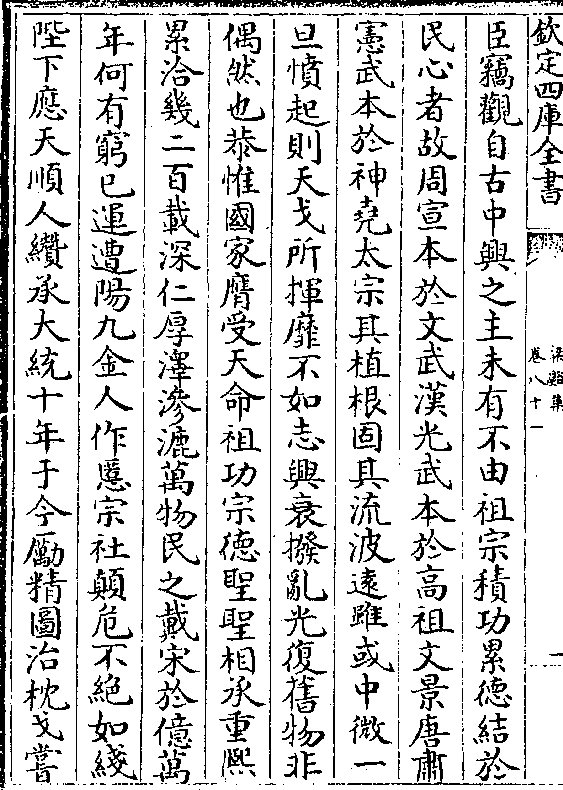 欽定四庫全書
梁谿集
卷八十一
一
臣竊觀自古中興之主未有不由祖宗積功累德結於
民心者故周宣本於文武漢光武本於高祖文景唐肅
憲武本於神堯太宗其植根固其流波遠雖或中微一
旦憤起則天戈所揮靡不如志興衰撥亂光復舊物非
偶然也恭惟國家膺受天命祖功宗德聖聖相承重熙
累洽幾二百載深仁厚澤滲漉萬物民之戴宋於億萬
年何有窮已運遭陽九金人作慝宗社顛危不絕如綫
陛下應天順人纘承大統十年于今勵精圖治枕戈嘗